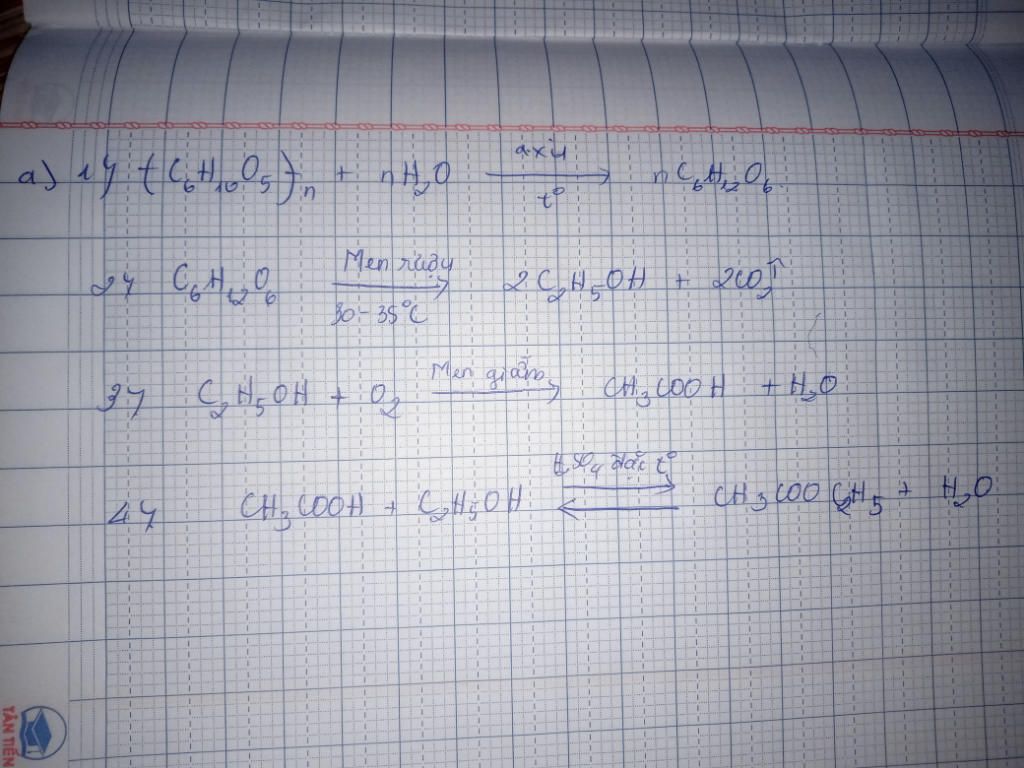 a) 1, (C₆H₁₀O₅)ₙ + nH₂O axit t° → nC₆H₁₂O₆.
2, C₆H₁₂O₆ Men rượu 30-35°C → 2C₂H₅OH + 2CO₂↑
3, C₂H₅OH + O₂ Men giấm → CH₃COOH + H₂O
4, CH₃COOH + C₂H₅OH H₂SO₄ đặc t° ⇌ CH₃COOC₂H₅ + H₂O
TÂN TIẾN